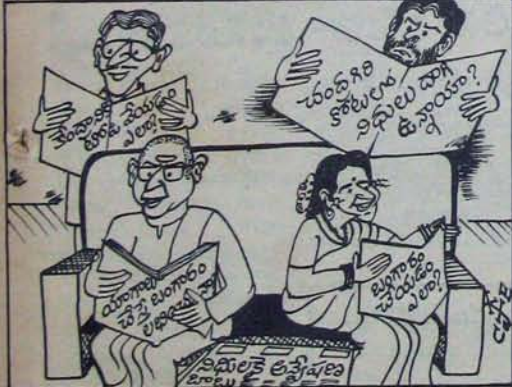 కేంద్రానికి
టోపీ వేయడం
ఎలా?
చంద్రగిరి
కోటలో
నిధులు దాగి
ఉన్నాయా?
యాగాలు
చేస్తే బంగారం
లభిస్తుందా
బంగారం
చేయడం
ఎలా?
నిధులకై అన్వేషణ